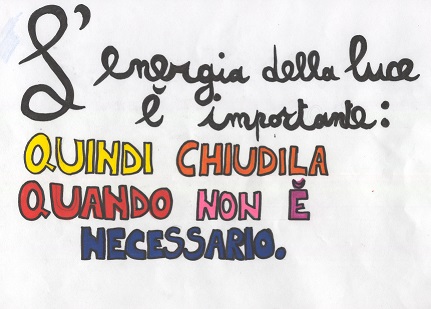 L'energia della luce
è importante:
QUINDI CHIUDILA
QUANDO NON È
NECESSARIO.